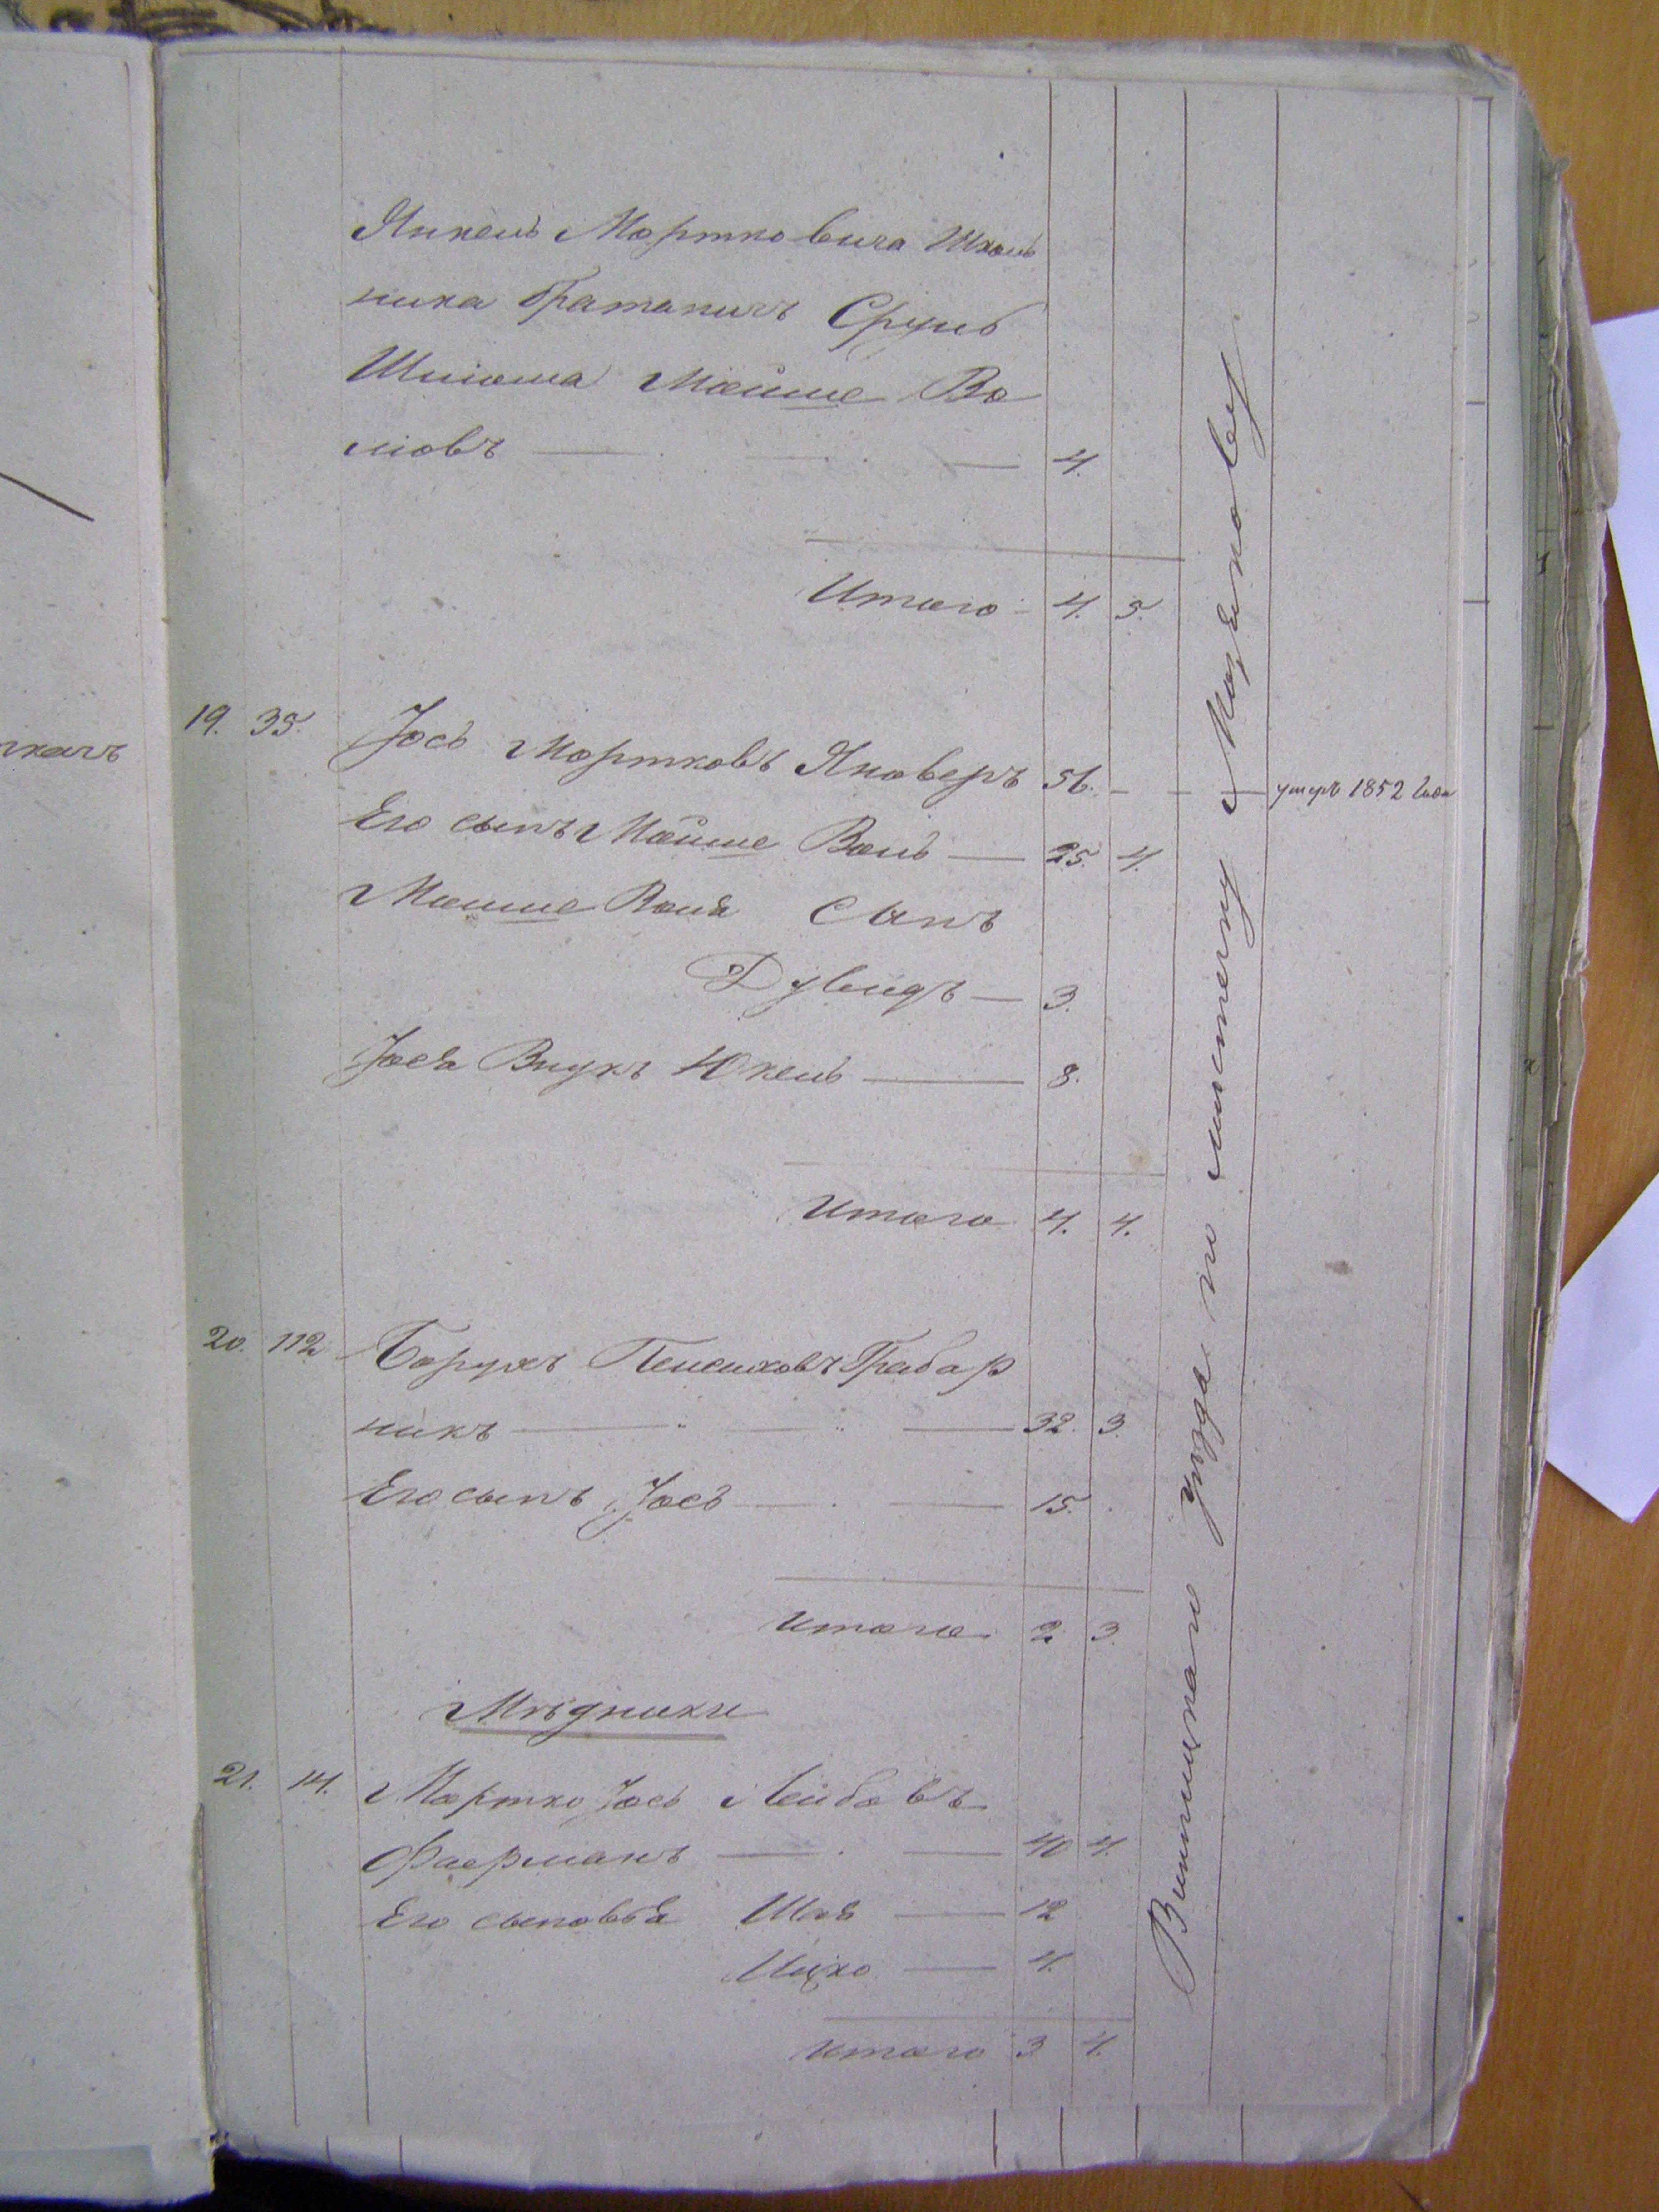 Янкель Мортковича Школь
ника братаничъ Сруль
Шлиома Мошке Во
лковъ 4.
Итого 4. 5.
19. 35. Іось Мортковъ Яноверъ 56. умеръ 1852 года
Его сынъ Мойше Волъ 25. 4.
Мошше Воля сынъ
Дувидъ 3.
Іося Внукъ Юкель 8.
Итого 4. 4.
20. 112 Борухъ Пейсиховъ Грабар
никъ 32. 3.
Его сынъ Іось 15.
Итого 2 3.
Мѣдники
21. 14. Мортко Іось Лейбовъ
Фаерманъ 40 4.
Его сыновья Шая 12
Ицко 4.
Итого 3 4.
Винницкаго уѣзда по мѣстечку
ткачъ